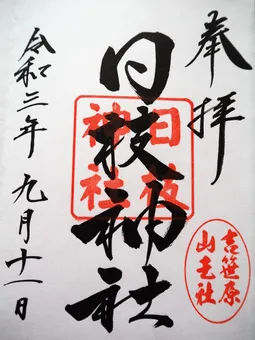 奉拝
日枝神社
日枝神社
吉笹原
山王社
令和三年九月十一日